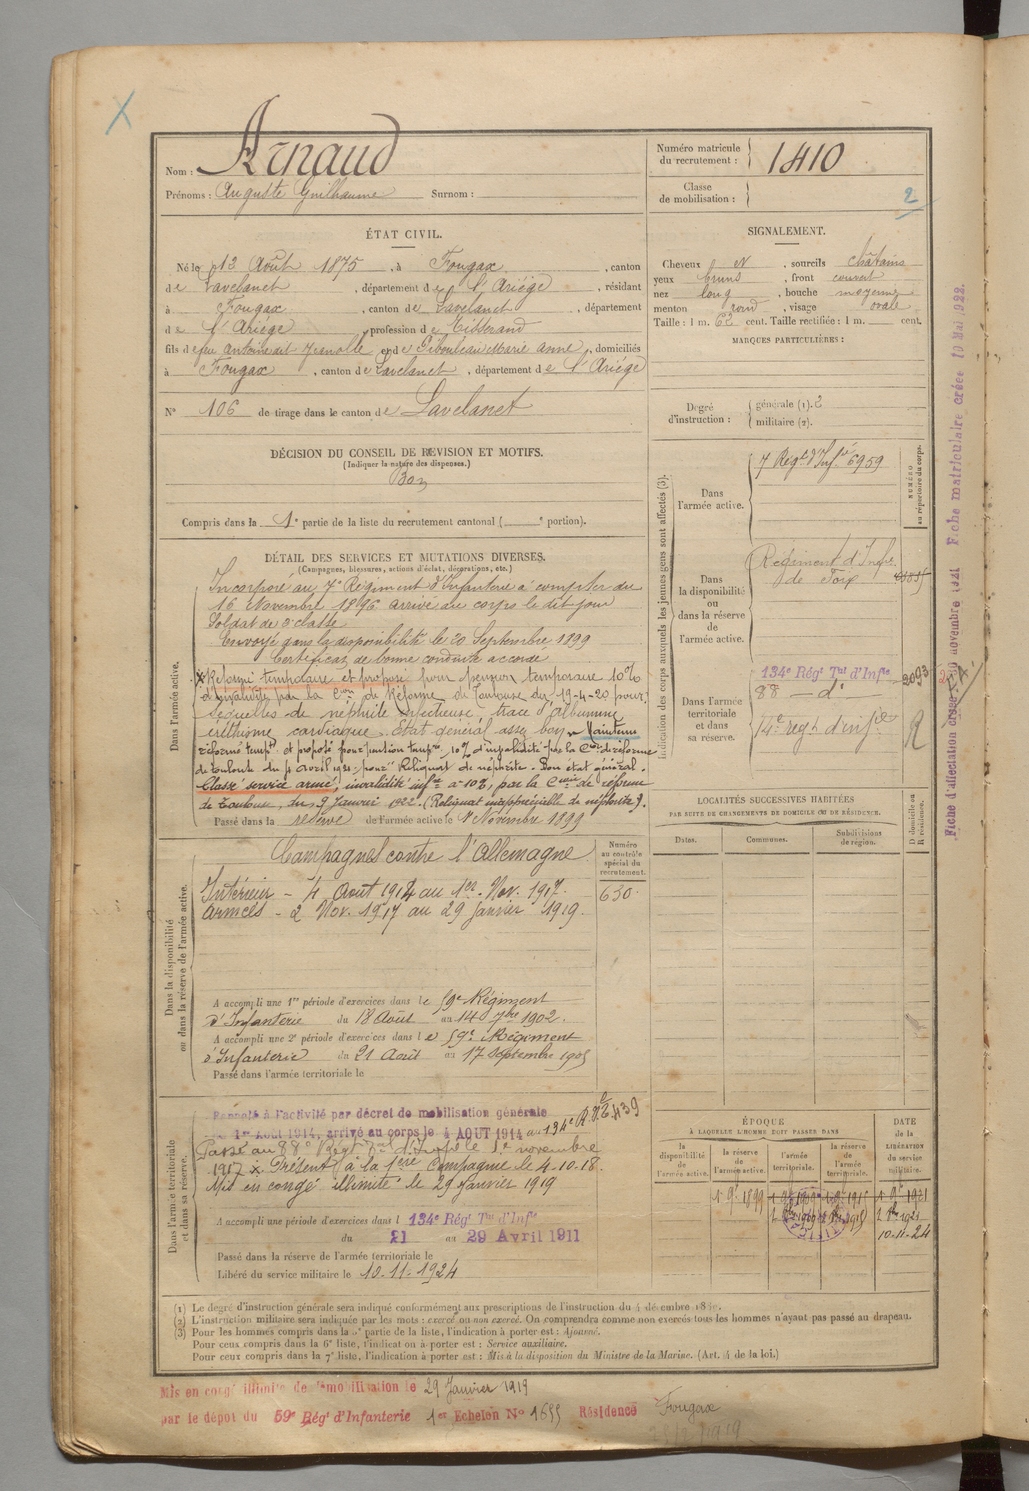 Nom : Arnaud
Prénoms : Auguste Guilhaume Surnom :
Numéro matricule
du recrutement : 1410
Classe
de mobilisation :
2
ÉTAT CIVIL.
Né le 12 Août 1875, à Fougax, canton
de Lavelanet, département de l'Ariège, résidant
à Fougax, canton de Lavelanet, département
de l'Ariège, profession de Tisserand
fils de feu Antoine dit Jeanolle et de Gibouleau Marie Anne, domiciliés
à Fougax, canton de Lavelanet, département de l'Ariège
N° 106 de tirage dans le canton de Lavelanet
SIGNALEMENT.
Cheveux N, sourcils châtains
yeux bruns, front couvert
nez long, bouche moyenne
menton rond, visage ovale
Taille : 1 m. 62 cent. Taille rectifiée : 1 m. cent.
MARQUES PARTICULIÈRES :
Degré
d'instruction :
générale (1). 2
militaire (2).
DÉCISION DU CONSEIL DE REVISION ET MOTIFS.
(Indiquer la nature des dispenses.)
Bon
Compris dans la 1e partie de la liste du recrutement cantonal ( e portion).
DÉTAIL DES SERVICES ET MUTATIONS DIVERSES.
(Campagnes, blessures, actions d'éclat, décorations, etc.)
Dans l'armée active.
Incorporé au 7e Régiment d'Infanterie à compter du
16 Novembre 1896 arrivé au corps le dit jour
Soldat de 2e classe
Envoyé dans la disponibilité le 20 Septembre 1899
Certificat de bonne conduite accordé
x Réformé temporaire et proposé pour pension temporaire 10%
d'invalidité par la Cion de Réforme de Toulouse du 19-4-20 pour
séquelles de néphrite infectieuse, trace d'albumine
éréthisme cardiaque. Etat général assez bon. Maintenu
réformé tempre et proposé pour pension tempre 10% d'invalidité par la Con de réforme
de Toulouse du 4 avril 1921 : pour : Reliquat de néphrite. Bon état général.
Classé service armé, invalidité infre à 10%, par la Cmion de réforme
de Toulouse, du 9 Janvier 1922. (Reliquat inappréciable de néphrite).
Passé dans la réserve de l'armée active le 1 Novembre 1899
Indication des corps auxquels les jeunes gens sont affectés (3).
NUMÉRO
au répertoire du corps.
Dans
l'armée active.
7 Régt d'Infie 6959
Dans
la disponibilité
ou
dans la réserve
de
l'armée active.
Régiment d'Infie
de Foix
Dans l'armée
territoriale
et dans
sa réserve.
134e Régt Tal d'Infie 2093
88 — do
14e regt d'infie
R
LOCALITÉS SUCCESSIVES HABITÉES
PAR SUITE DE CHANGEMENTS DE DOMICILE OU DE RÉSIDENCE.
Dates.
Communes.
Subdivisions
de région.
D domicile ou
R résidence.
Fiche matriculaire créée 10 Mai 1922.
Dans la disponibilité
ou dans la réserve de l'armée active.
Campagnes contre l'Allemagne
Numéro
au contrôle
spécial du
recrutement.
630
Intérieur - 4 Août 1914 au 1er Nov. 1917.
Armées - 2 Nov. 1917 au 29 Janvier 1919.
A accompli une 1re période d'exercices dans le 59e Régiment
d'Infanterie du 18 Août au 14 7bre 1902.
A accompli une 2e période d'exercices dans le 59e Régiment
d'Infanterie du 21 Août au 17 Septembre 1905
Passé dans l'armée territoriale le
Dans l'armée territoriale
et dans sa réserve.
Rappelé à l'activité par décret de mobilisation générale
1er Août 1914, arrivé au corps le 4 AOUT 1914 au 134e R.I.T. 439
Passé au 88e Régt Tal d'Infie le 1er novembre
1917 x Présent à la 1ère Compagnie le 4-10-18.
Mis en congé illimité le 29 Janvier 1919
A accompli une période d'exercices dans l 134e Régt Tal d'Infie
du 21 au 29 Avril 1911
Passé dans la réserve de l'armée territoriale le
Libéré du service militaire le 10-11-1924
ÉPOQUE
À LAQUELLE L'HOMME DOIT PASSER DANS
la
disponibilité
de
l'armée active.
la réserve
de
l'armée active.
l'armée
territoriale.
la réserve
de
l'armée
territoriale.
DATE
de la
LIBÉRATION
du service
militaire.
10-11-24
(1) Le degré d'instruction générale sera indiqué conformément aux prescriptions de l'instruction du 4 décembre
(2) L'instruction militaire sera indiquée par les mots : exercé ou non exercé. On comprendra comme non exercés tous les hommes n'ayant pas passé au drapeau.
(3) Pour les hommes compris dans la 5e partie de la liste, l'indication à porter est : Ajourné.
Pour ceux compris dans la 6e liste, l'indication à porter est : Service auxiliaire.
Pour ceux compris dans la 7e liste, l'indication à porter est : Mis à la disposition du Ministre de la Marine. (Art. 4 de la loi.)
Mis en congé illimité de démobilisation le 29 Janvier 1919
par le dépôt du 59e Rég' d'Infanterie 1er Echelon N° 1655 Résidence Fougax